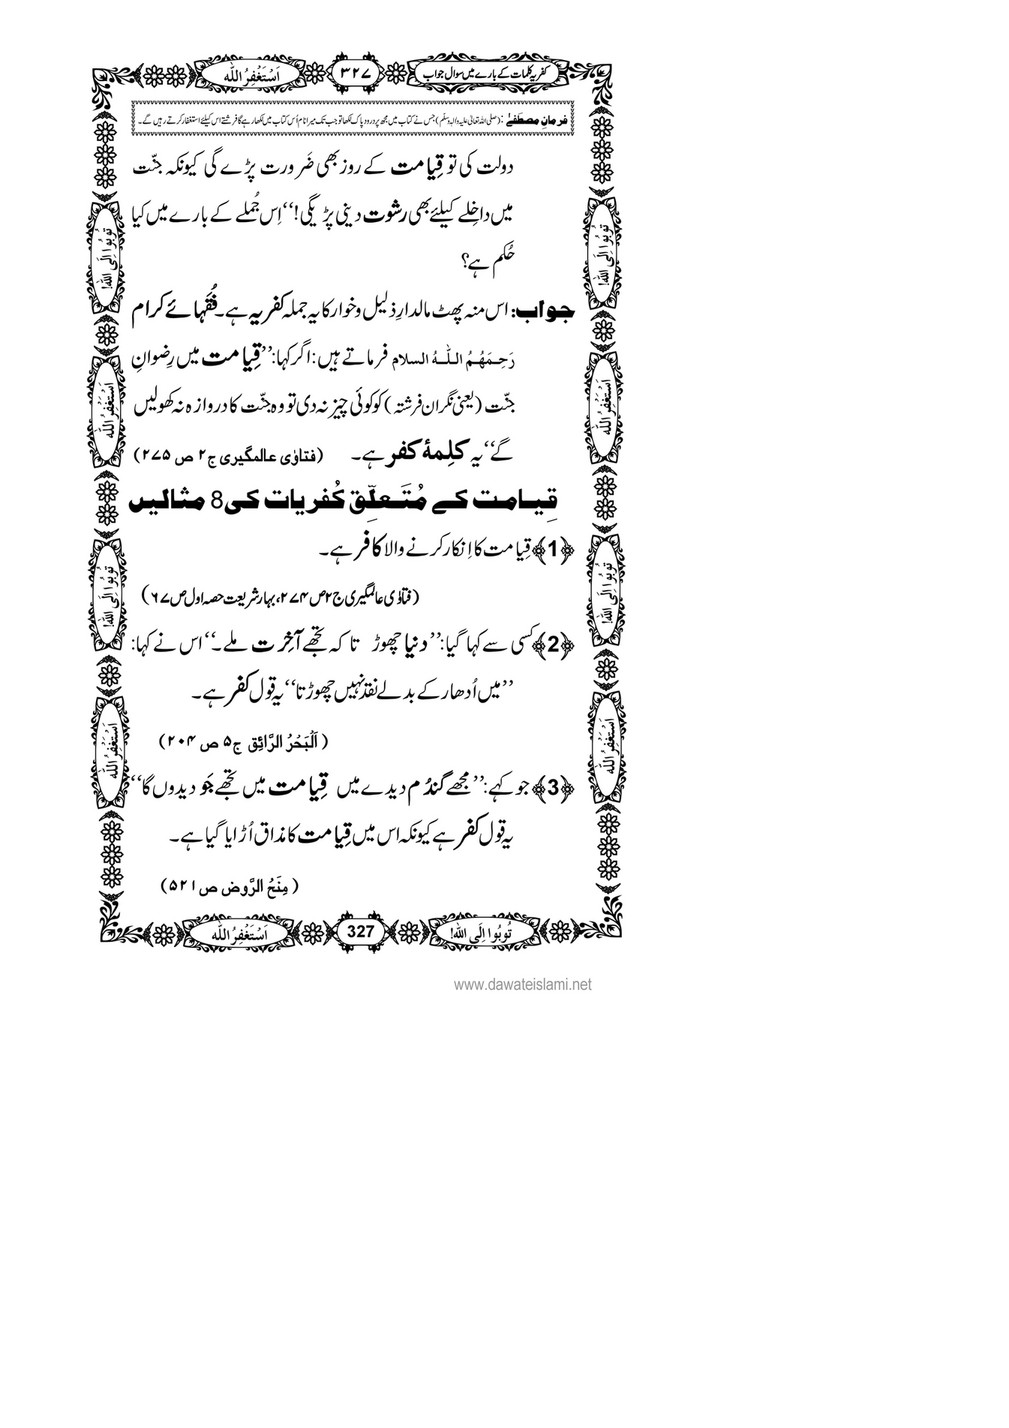 کفریہ کلمات کے بارے میں سوال جواب ۳۲۷ اَسْتَغْفِرُ اللّٰه
فرمانِ مصطفٰے: (صلی اللہ تعالیٰ علیہ والہٖ وسلّم) جس نے کتاب میں مجھ پر درود پاک لکھا تو جب تک میرا نام اُس کتاب میں لکھا رہے گا فرشتے اس کیلئے استغفار کرتے رہیں گے۔
دولت کی تو قِیامت کے روز بھی ضَرورت پڑے گی کیونکہ جنّت
میں داخِلے کیلئے بھی رشوت دینی پڑیگی!‘‘ اِس جُملے کے بارے میں کیا
حُکم ہے؟
جواب: اس منہ پھٹ مالدارِ ذلیل و خوار کا یہ جملہ کفریہ ہے۔ فُقَہائے کرام
رَحِمَهُمُ اللّٰهُ السلام فرماتے ہیں: اگر کہا: ’’قِیامت میں رِضوانِ
جنّت (یعنی نگران فرشتہ) کو کوئی چیز نہ دی تو وہ جنّت کا دروازہ نہ کھولیں
گے‘‘ یہ کلِمۂ کفر ہے۔ (فتاوٰی عالمگیری ج۲ ص ۲۷۵)
قِیامت کے مُتَعلِّق کُفریات کی 8 مثالیں
﴿1﴾ قِیامت کا اِنکار کرنے والا کافر ہے۔
(فتاوٰی عالمگیری ج۲ص ۲۷۴، بہارشریعت حصہ اول ص ۶۷)
﴿2﴾ کسی سے کہا گیا: ’’دنیا چھوڑ تا کہ تجھے آخِرت ملے۔‘‘ اس نے کہا:
’’میں اُدھار کے بدلے نقد نہیں چھوڑتا‘‘ یہ قول کفر ہے۔
(اَلْبَحْرُ الرَّائِق ج۵ ص ۲۰۴)
﴿3﴾ جو کہے: ’’مجھے گندُم دیدے میں قِیامت میں تجھے جَو دیدوں گا‘‘
یہ قول کفر ہے کیونکہ اس میں قِیامت کا مذاق اُڑایا گیا ہے۔
(مِنَحُ الرَّوض ص ۵۲۱)
تُوبُوا اِلَی اللّٰه!
اَسْتَغْفِرُ اللّٰه
تُوبُوا اِلَی اللّٰه!
اَسْتَغْفِرُ اللّٰه
تُوبُوا اِلَی اللّٰه!
اَسْتَغْفِرُ اللّٰه
تُوبُوا اِلَی اللّٰه!
اَسْتَغْفِرُ اللّٰه
تُوبُوا اِلَی اللّٰه! 327 اَسْتَغْفِرُ اللّٰه
www.dawateislami.net